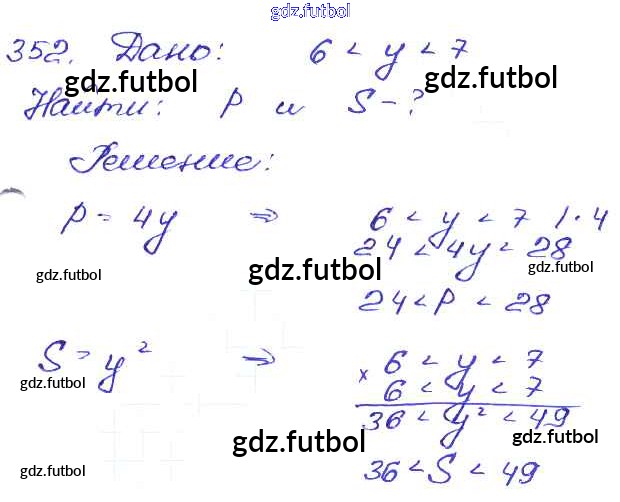 gdz.futbol
352. Дано: 6 < y < 7
gdz.futbol gdz.futbol
Найти: P и S - ?
Решение:
P = 4y ⇒ 6 < y < 7 | · 4
24 < 4y < 28
gdz.futbol gdz.futbol gdz.futbol
24 < P < 28
S = y² ⇒ × 6 < y < 7
gdz.futbol 6 < y < 7
36 < y² < 49
gdz.futbol gdz.futbol
gdz.futbol 36 < S < 49